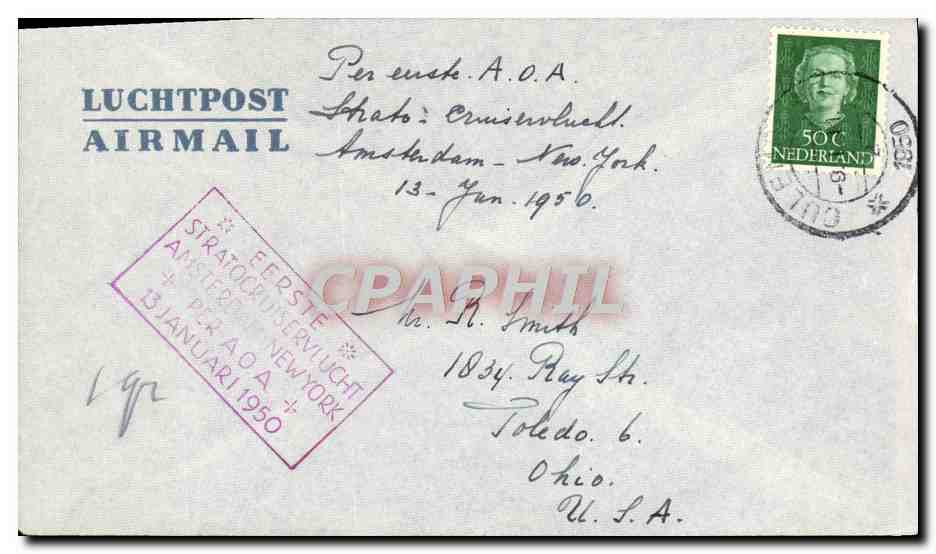 LUCHTPOST
AIRMAIL
Per eerste. A.O.A.
Strato: cruiservlucht.
Amsterdam - New. York.
13 - Jan. 1950.
50 C
NEDERLAND
1950
* EERSTE *
STRATOCRUISERVLUCHT
AMSTERDAM NEW YORK
* PER A O A *
13 JANUARI 1950
CPAPHIL
Mr. R. Smith
1834. Ray Str.
Toledo. 6.
Ohio.
U. S. A.